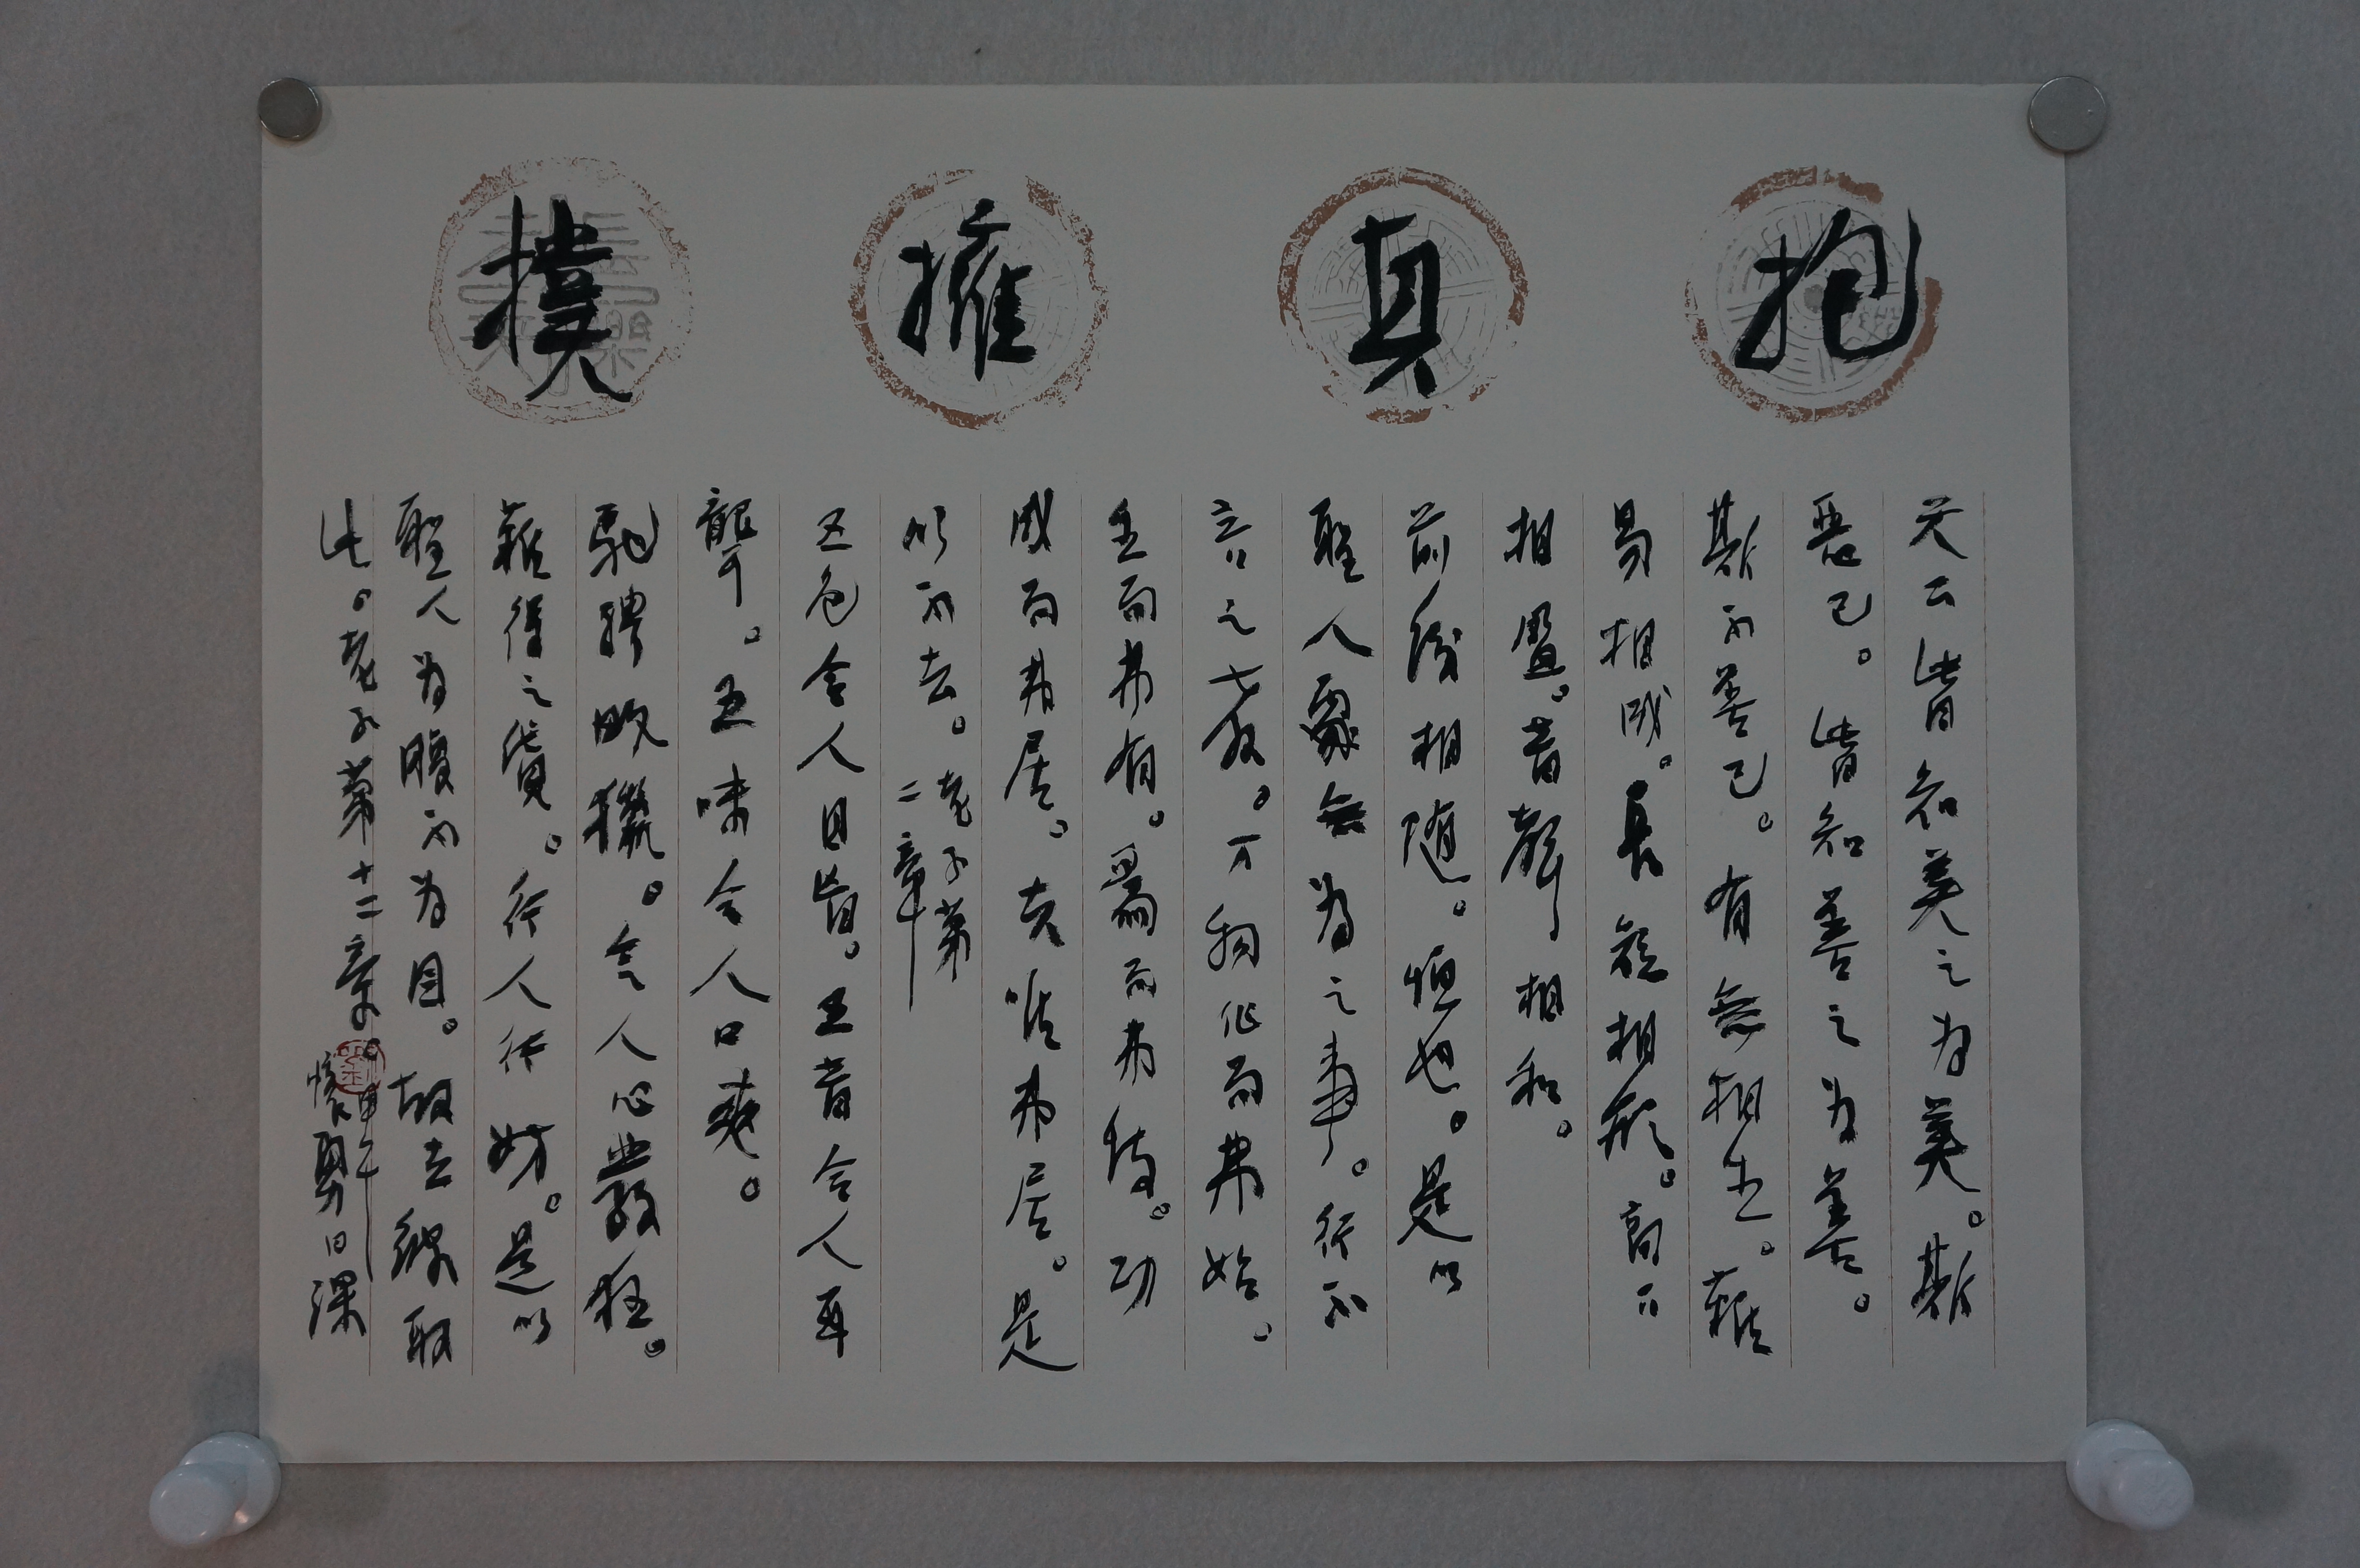 抱真擁撲
天下皆知美之为美。斯
惡已。皆知善之为善。
斯不善已。有無相生。難
易相成。長短相形。高下
相盈。音聲相和。
前後相随。恒也。是以
聖人處無为之事。行不
言之教。万物作而弗始。
生而弗有。爲而弗恃。功
成而弗居。夫唯弗居。是
以不去。老子第
二章
五色令人目盲。五音令人耳
聾。五味令人口爽。
馳騁畋獵。令人心發狂。
難得之貨。行人行妨。是以
聖人为腹不为目。故去彼取
此。老子第十二章。甲午
懷勇日課
劉